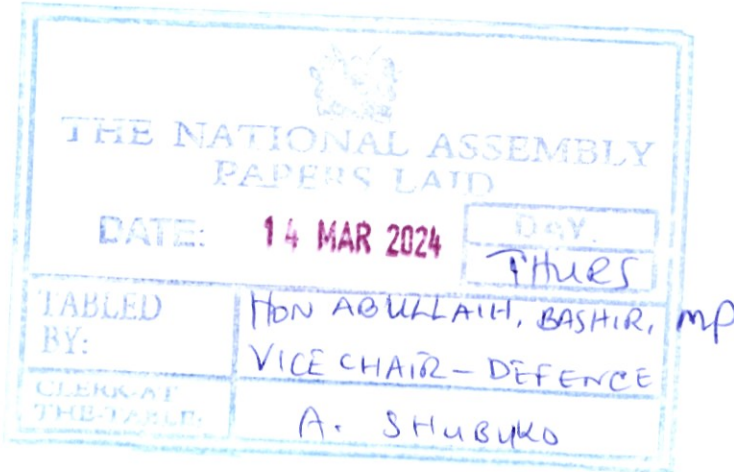 THE NATIONAL ASSEMBLY
PAPERS LAID
DATE: 14 MAR 2024
DAY.
THURS
TABLED
BY:
HON ABULLAIH, BASHIR, MP
VICE CHAIR – DEFENCE
CLERK-AT
THE-TABLE:
A. SHUBUKO